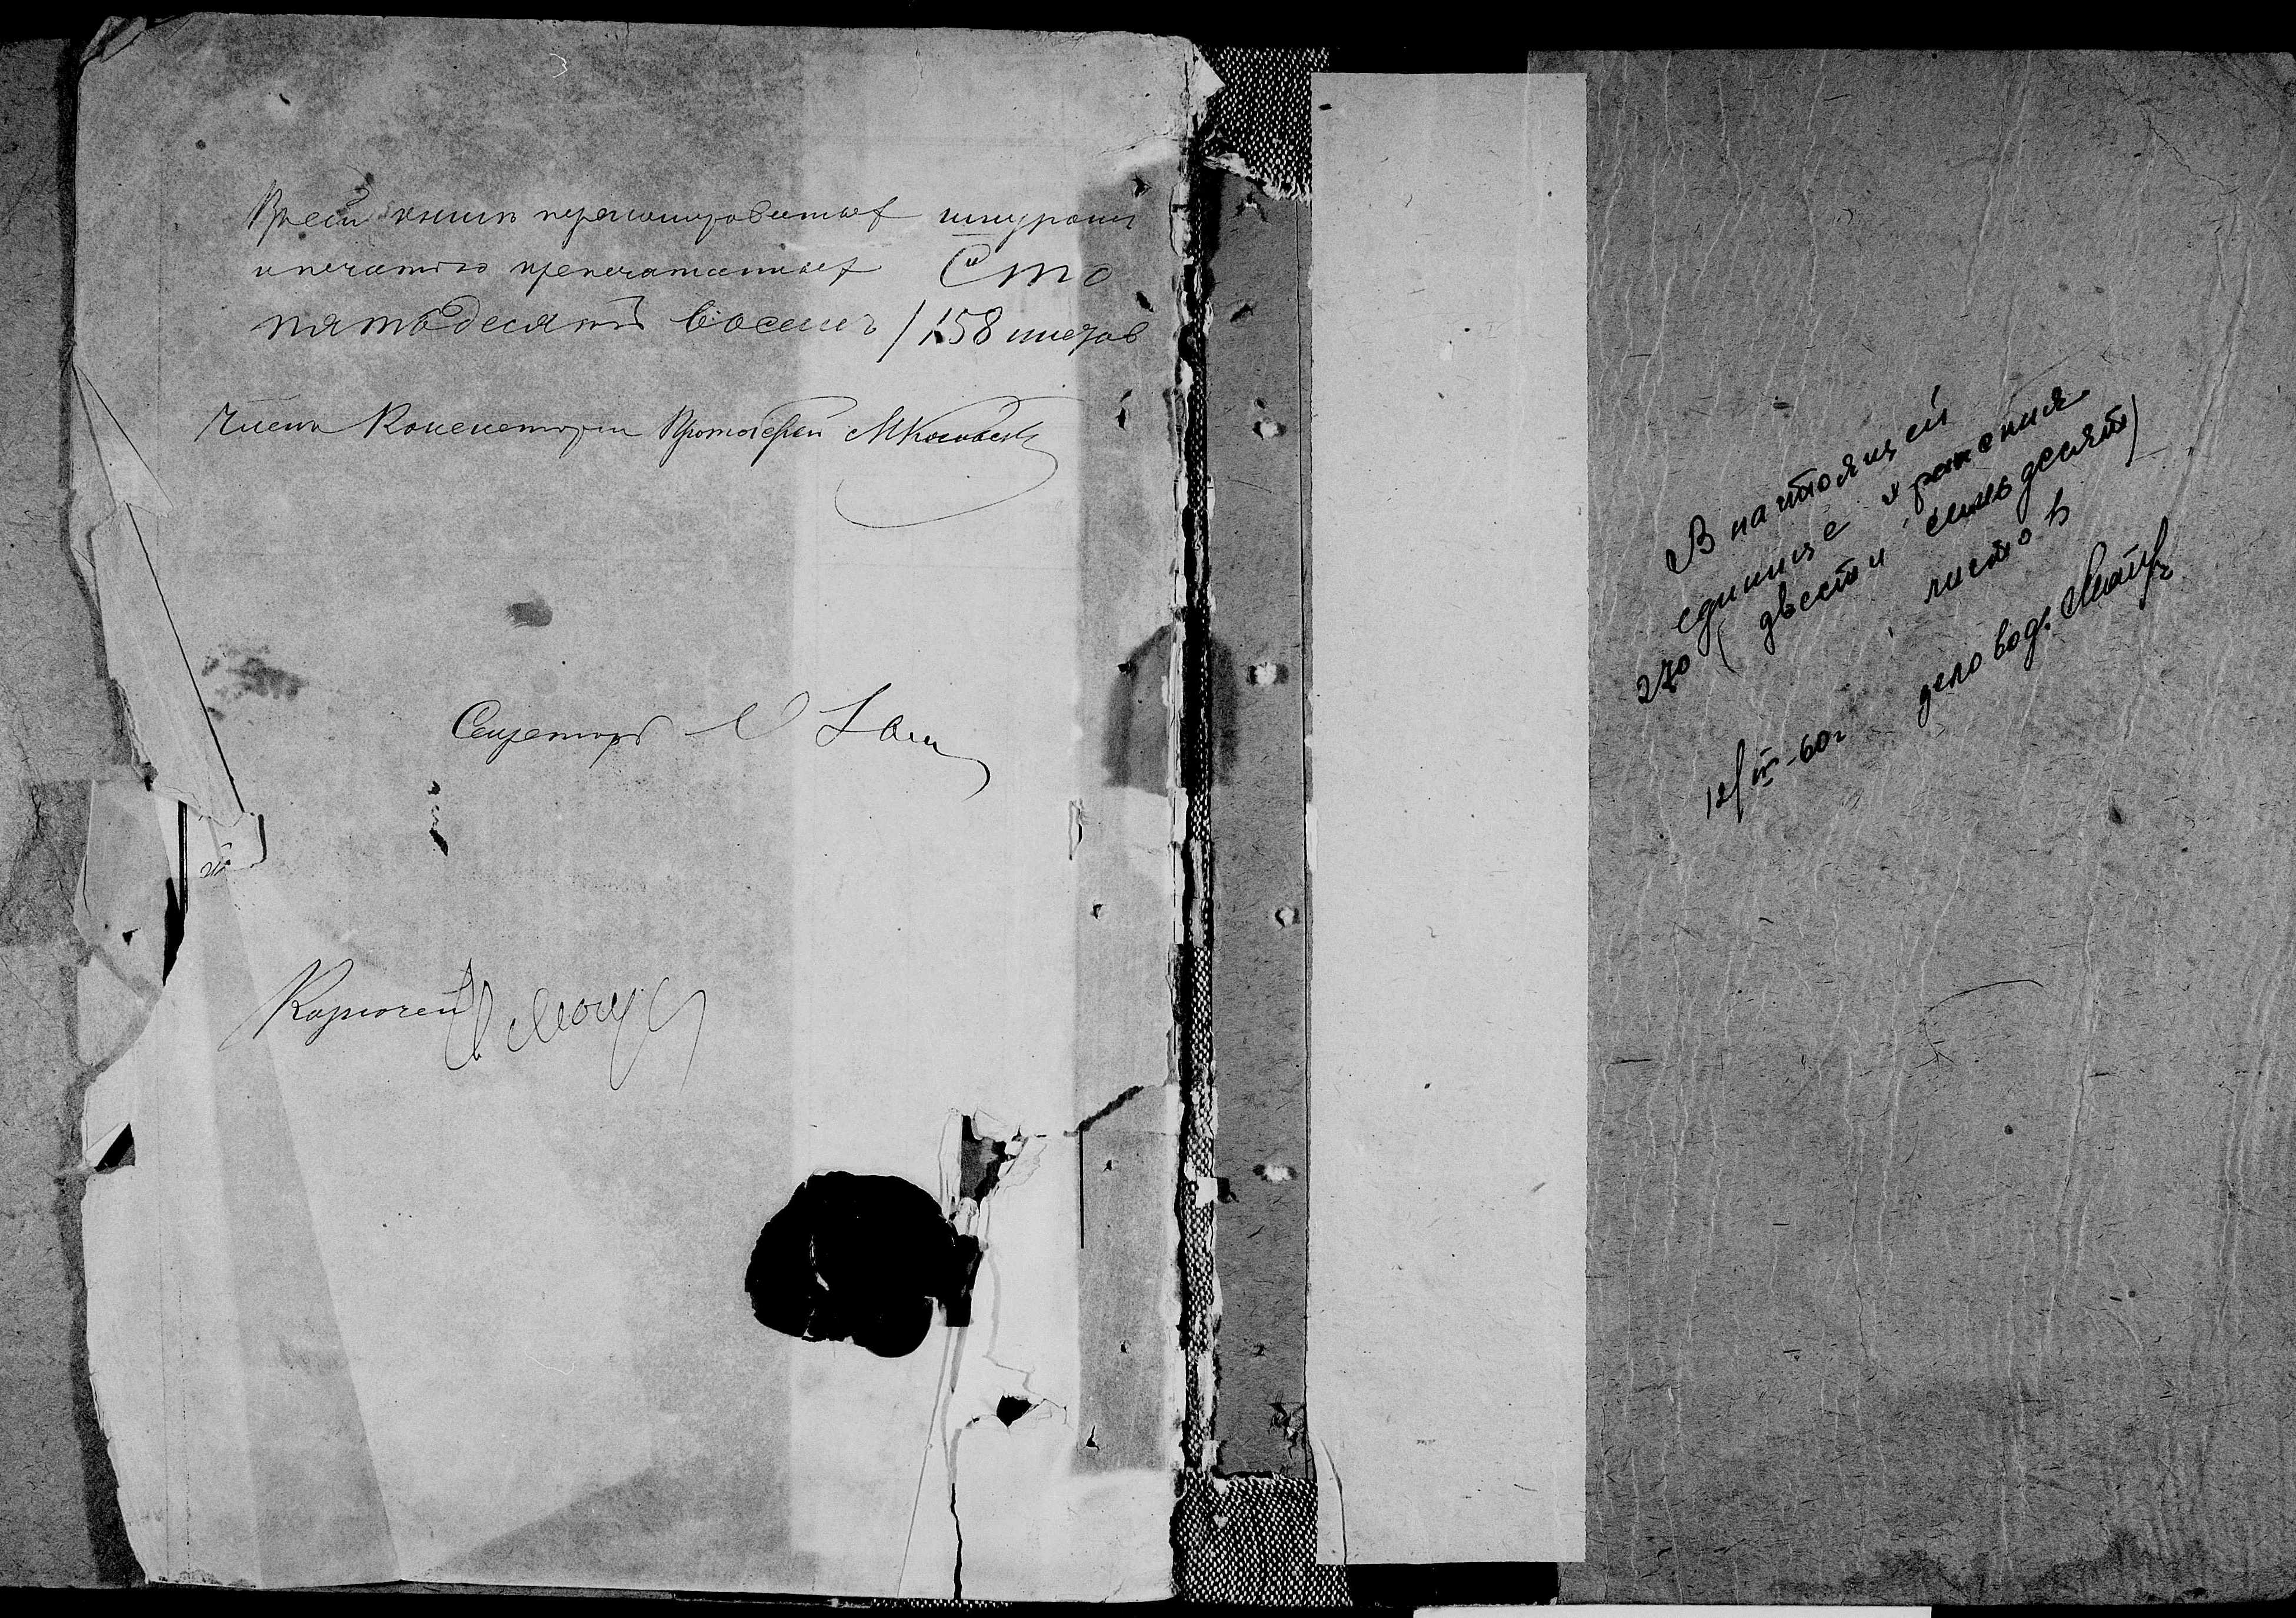 В сей книге перенумерованныхъ шнуромъ
и печатью припечатанныхъ Сто
пятьдесятъ восемь /158 листов
Членъ Консисторіи Протоіерей
Секретарь
Казначей
В настоящей
единице хранения
270 (двести семьдесят)
листов
12/IV-60г делов од.